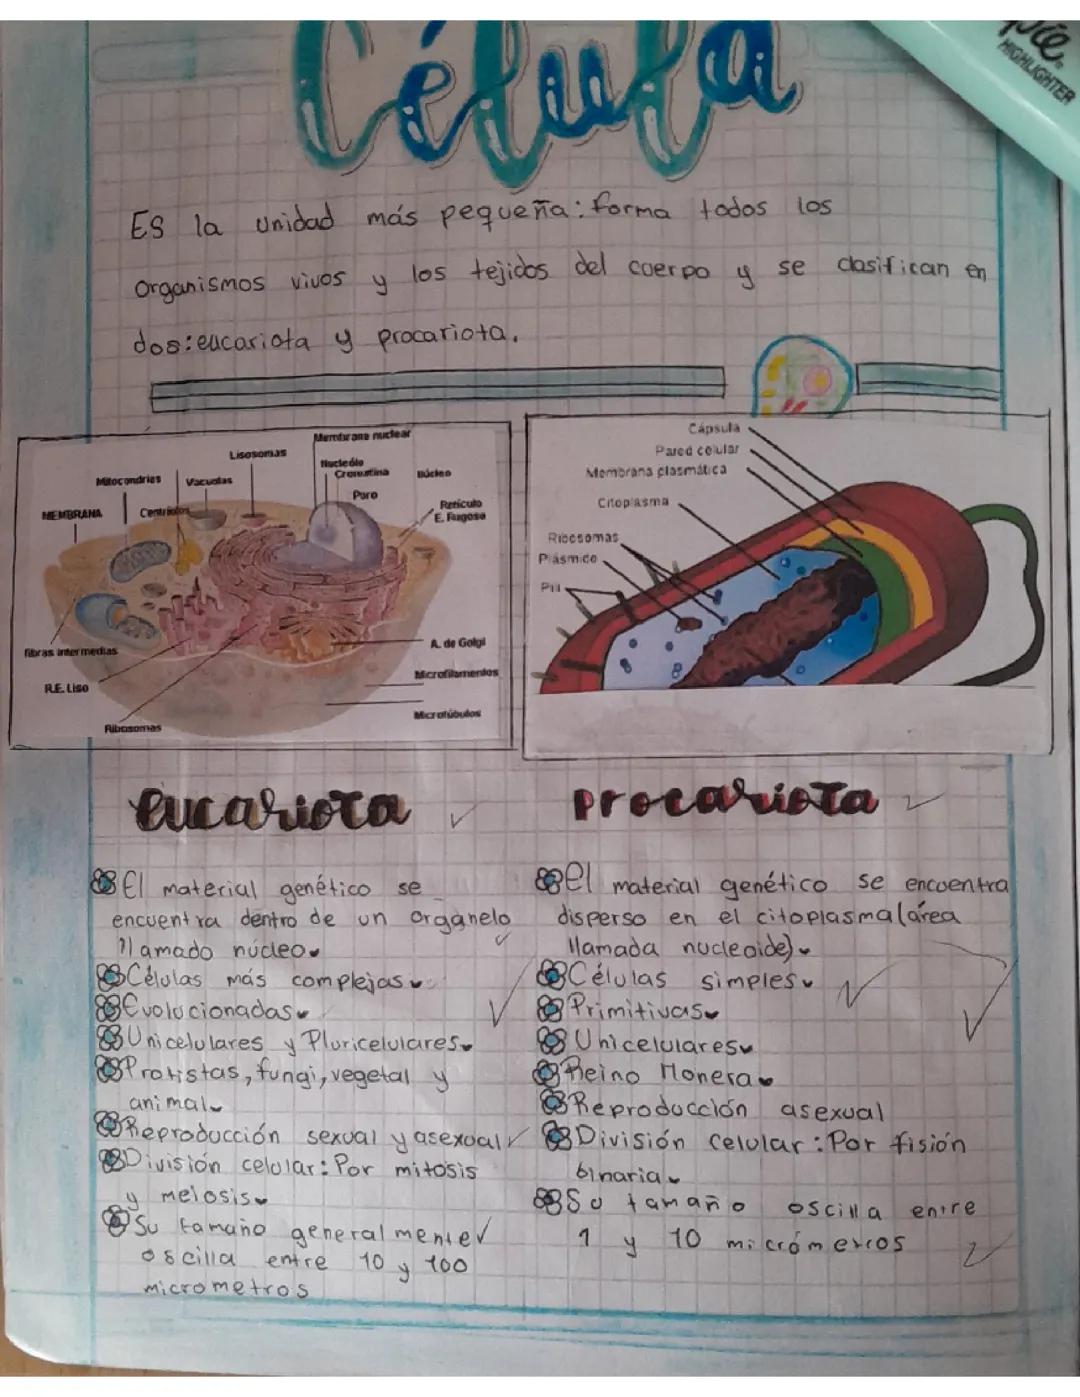 Célula
HIGHLIGHTER
Es la unidad más pequeña: forma todos los
organismos vivos y los tejidos del cuerpo y se clasifican en
dos: eucariota y procariota.
Membrana nuclear
Lisosomas
Nucleólo
Cromatina
Núcleo
Mitocondrias
Vacuolas
Poro
Retículo
E. Rugoso
MEMBRANA
Centríolos
fibras intermedias
A. de Golgi
R.E. Liso
Microfilamentos
Microtúbulos
Ribosomas
Cápsula
Pared celular
Membrana plasmática
Citoplasma
Ribosomas
Plásmido
Pili
eucariota
El material genético se
encuentra dentro de un organelo
llamado núcleo
Células más complejas
Evolucionadas
Unicelulares y Pluricelulares
Protistas, fungi, vegetal y
animal
Reproducción sexual y asexual
División celular: Por mitosis
y meiosis
Su tamaño generalmente
oscilla entre 10 y 100
micrometros
procariota
El material genético se encuentra
disperso en el citoplasma (área
llamada nucleoide)
Células simples
Primitivas
Unicelulares
Reino Monera
Reproducción asexual
División celular: Por fisión
binaria
Su tamaño oscilla entre
1 y 10 micrómetros